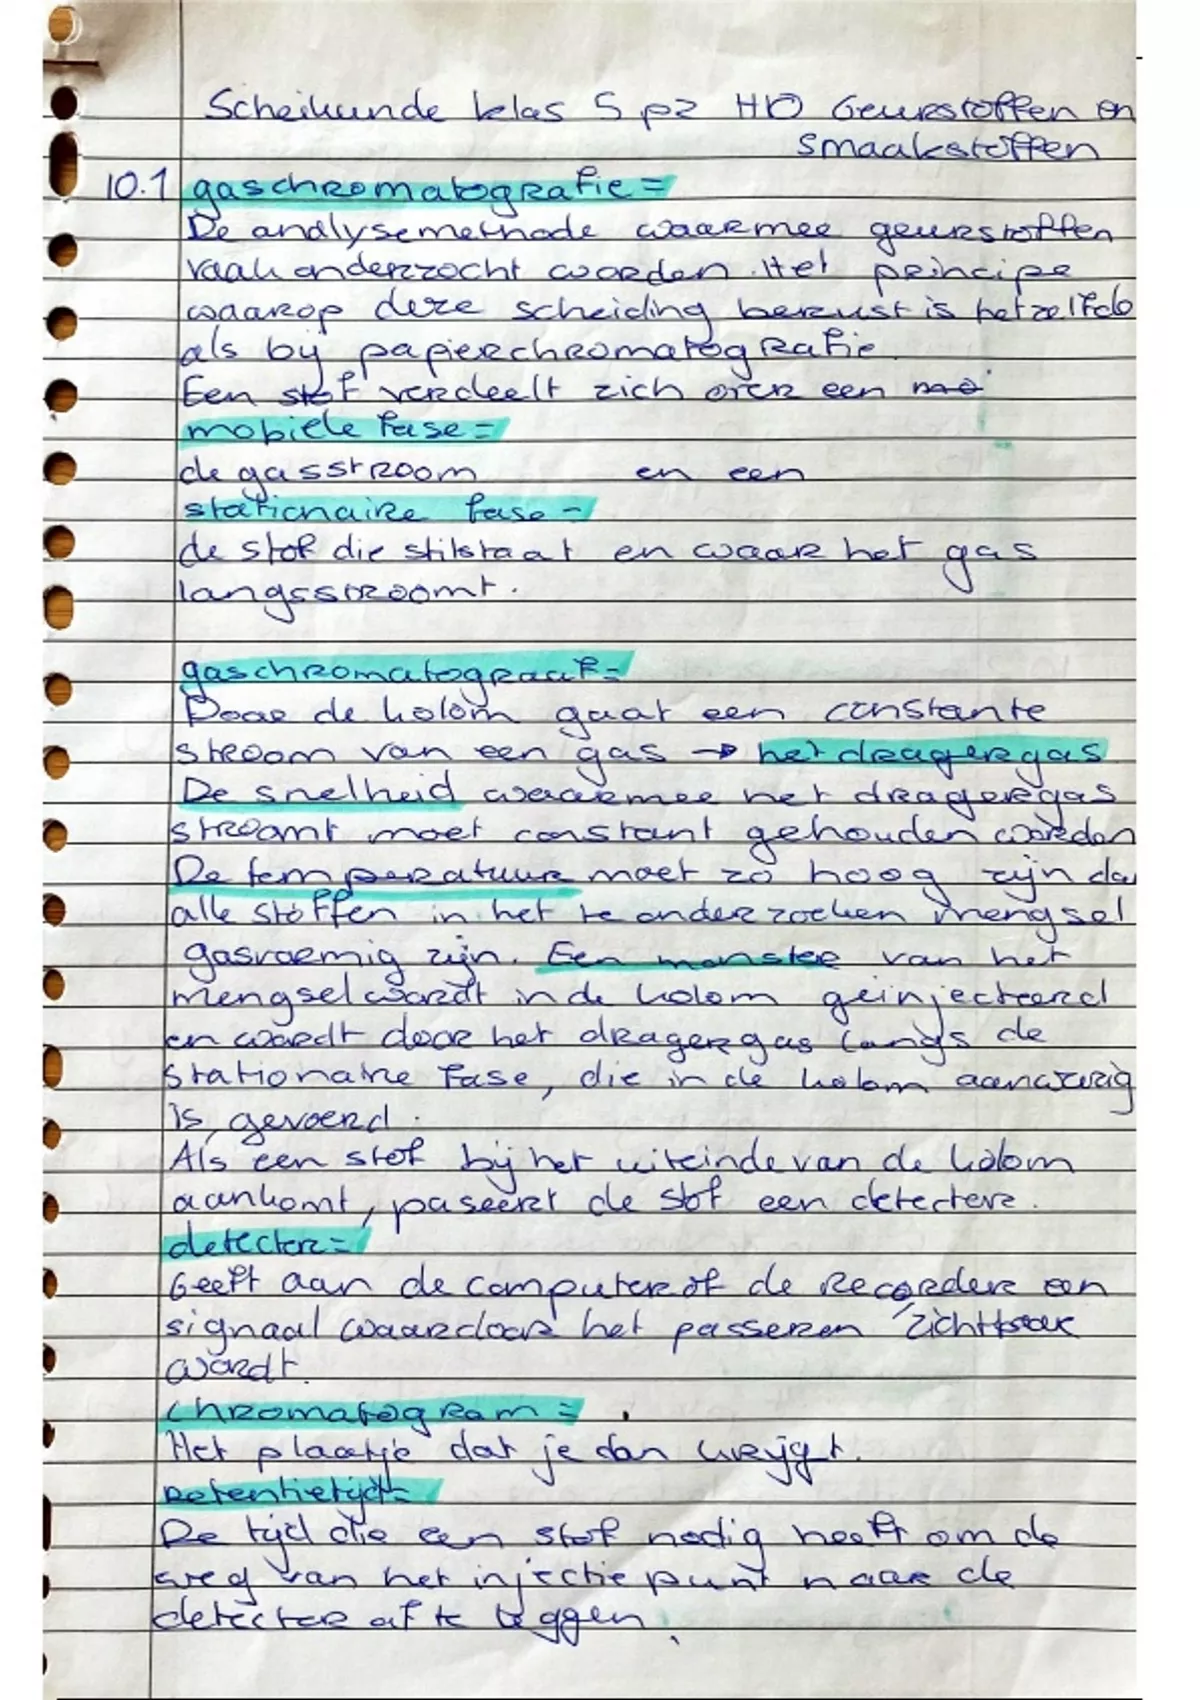 Scheikunde klas 5 p2 H10 Geurstoffen en
smaakstoffen
10.1 gaschromatografie =
De analysemethode waarmee geurstoffen
vaak onderzocht worden. Het principe
waarop deze scheiding berust is hetzelfde
als bij papierchromatografie.
Een stof verdeelt zich over een
mobiele fase =
de gasstroom en een
stationaire fase =
de stof die stilstaat en waar het gas
langsstroomt.
gaschromatograaf =
Door de kolom gaat een constante
stroom van een gas → het dragergas
De snelheid waarmee het dragergas
stroomt moet constant gehouden worden
De temperatuur moet zo hoog zijn da
alle stoffen in het te onderzoeken mengsel
gasvormig zijn. Een monster van het
mengsel wordt in de kolom geïnjecteerd
en wordt door het dragergas langs de
stationaire fase, die in de kolom aanwezig
is, gevoerd.
Als een stof bij het uiteinde van de kolom
aankomt, paseert de stof een detector.
detector =
Geeft aan de computer of de recorder een
signaal waardoor het passeren zichtbaar
wordt.
chromatogram =
Het plaatje dat je dan krijgt.
Retentietijd =
De tijd die een stof nodig heeft om de
weg van het injectiepunt naar de
detector af te leggen.